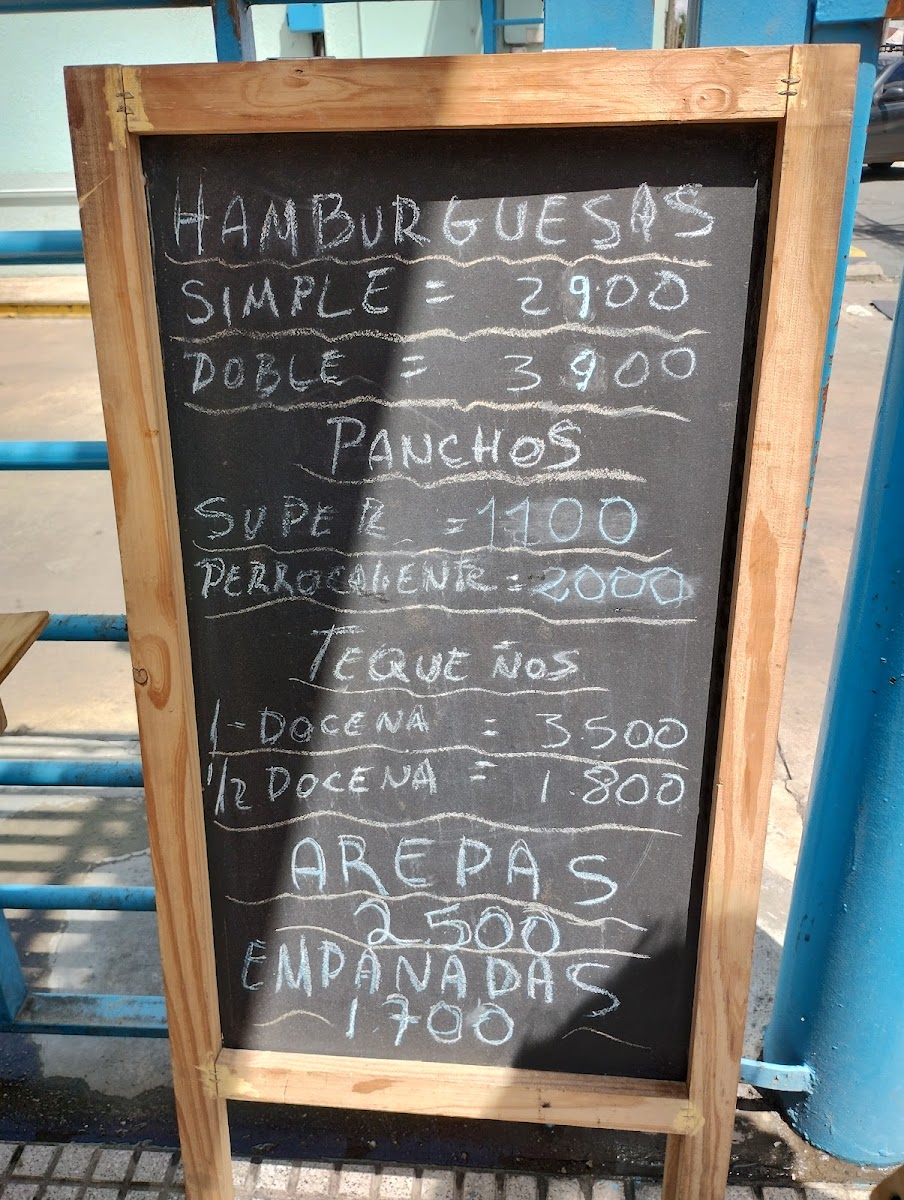 HAMBURGUESAS
SIMPLE = 2900
DOBLE = 3900
PANCHOS
SUPER = 1100
PERROCALIENTE = 2000
TEQUEÑOS
1- DOCENA = 3.500
1/2 DOCENA = 1.800
AREPAS
2.500
EMPANADAS
1.700